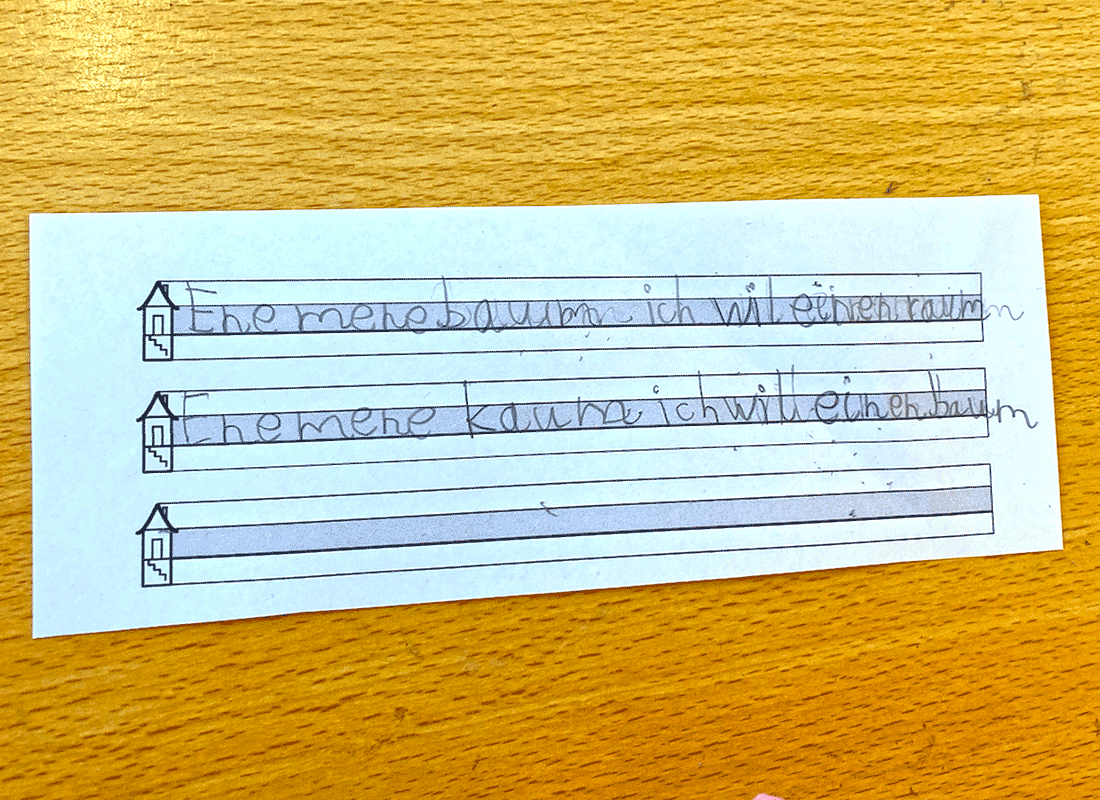 Ene mene baum ich wil einen raum
Ene mene kaum ich will einen baum